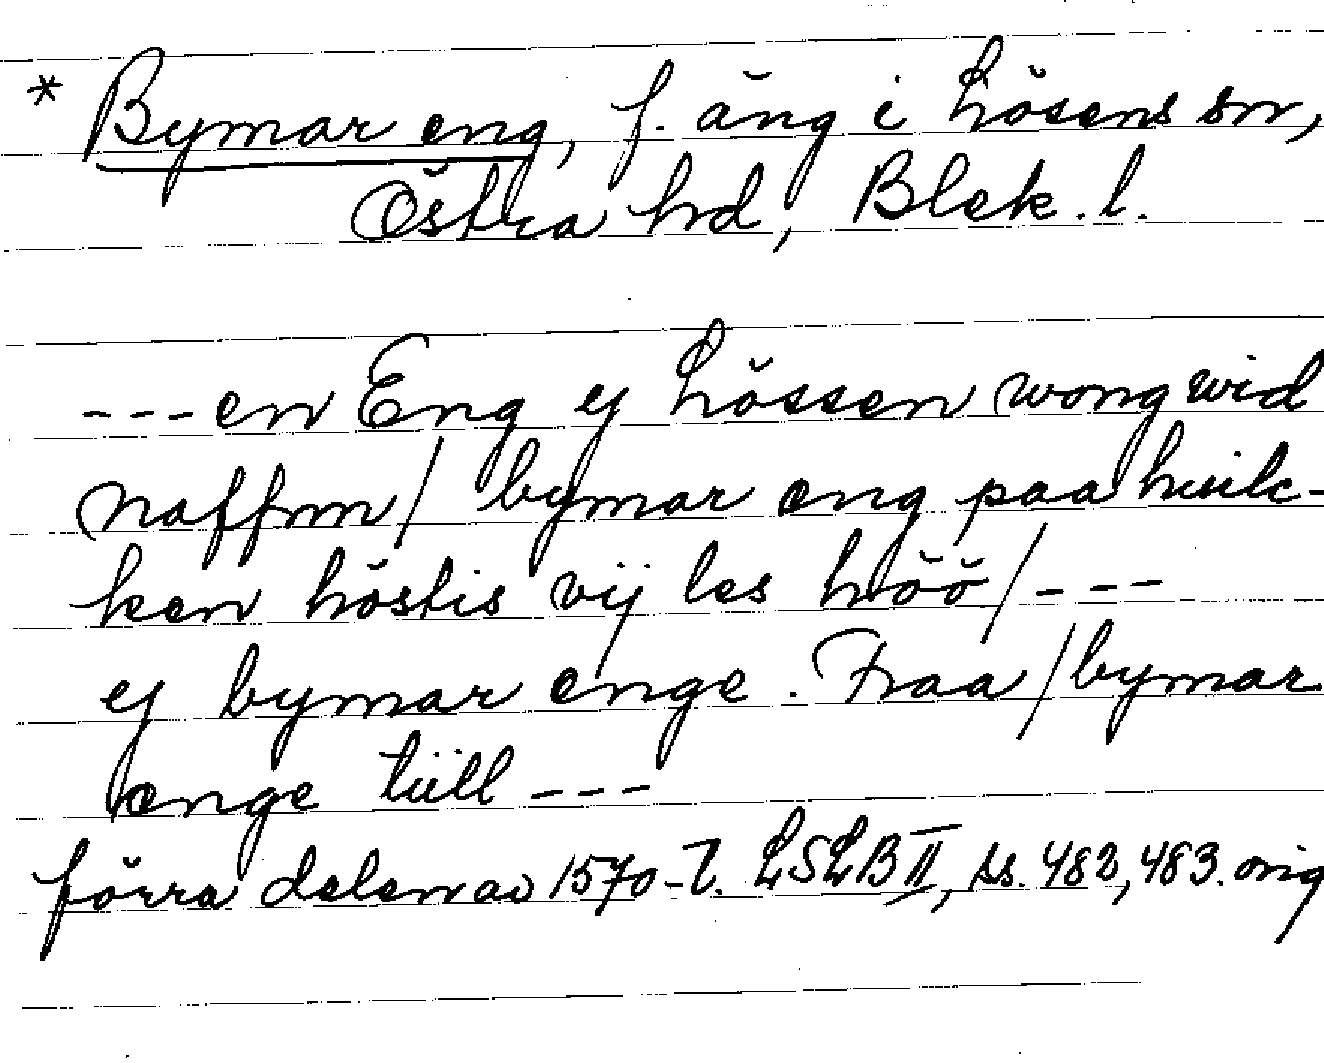 * Bymar eng, f. äng i Lösens sn,
Östra hd, Blek. l.
---en Eng ej Lössen wong wid
naffnn / bymar eng paa huilc-
ken höstis vij les höö / ---
ej bymar enge. Fraa / bymar
enge tüll ---
förra delen av 1570-t. LSLB II, ss. 482, 483. orig